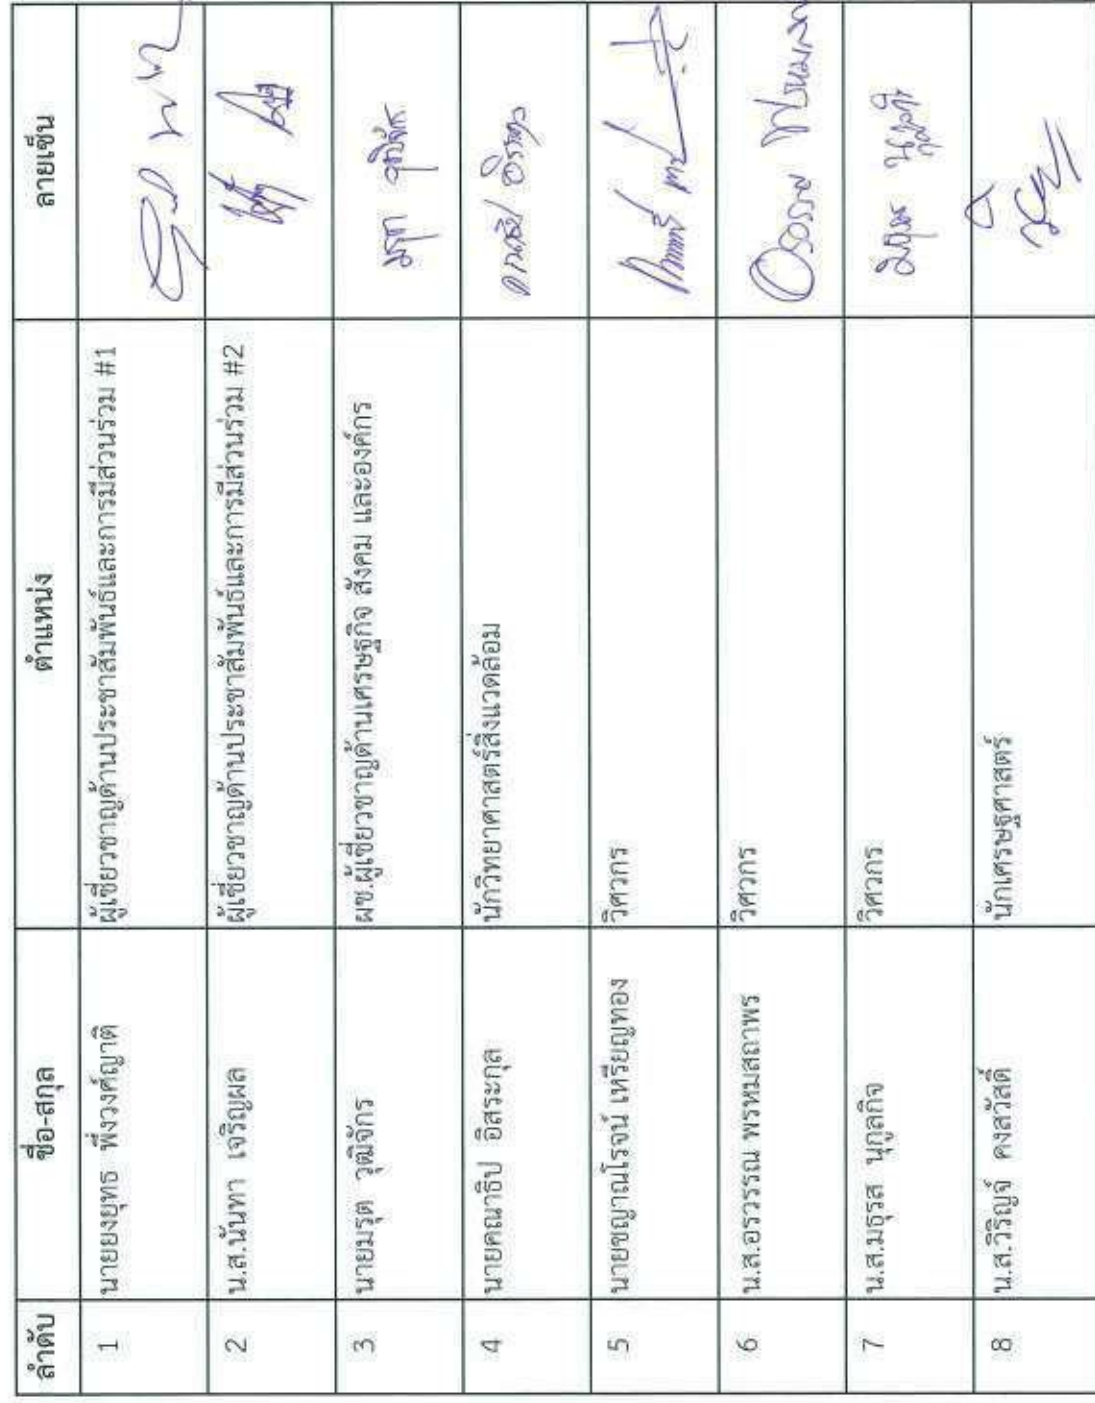 ลำดับ ชื่อ-สกุล ตำแหน่ง ลายเซ็น
1 นายยงยุทธ พึ่งวงศ์ญาติ ผู้เชี่ยวชาญด้านประชาสัมพันธ์และการมีส่วนร่วม #1
2 น.ส.นันทา เจริญผล ผู้เชี่ยวชาญด้านประชาสัมพันธ์และการมีส่วนร่วม #2
3 นายมรุต วุฒิจักร ผช.ผู้เชี่ยวชาญด้านเศรษฐกิจ สังคม และองค์กร มรุต วุฒิจักร
4 นายคณาธิป อิสระกุล นักวิทยาศาสตร์สิ่งแวดล้อม
5 นายชญาณโรจน์ เหรียญทอง วิศวกร
6 น.ส.อรวรรณ พรหมสถาพร วิศวกร อรวรรณ
7 น.ส.มธุรส นุกูลกิจ วิศวกร มธุรส นุกูลกิจ
8 น.ส.วิริญจ์ คงสวัสดิ์ นักเศรษฐศาสตร์